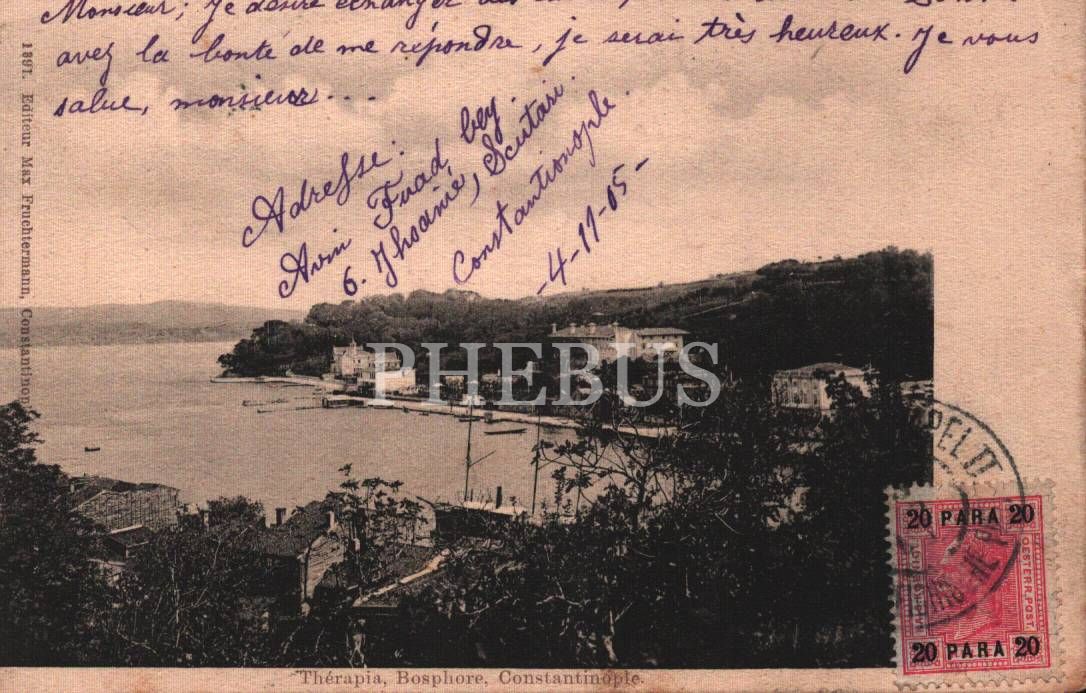 Monsieur; Je désire échanger des
avez la bonté de me répondre, je serai très heureux. Je vous
salue, monsieur....
Adresse:
Avin Fuad, bey.
6. Jhsanié, Scutari
Constantionople.
-4-11-05-
1897. Editeur Max Fruchtermann, Constantinop
PHEBUS
20 PARA 20
OESTERR.POST
20 PARA 20
Thérapia, Bosphore, Constantinople.